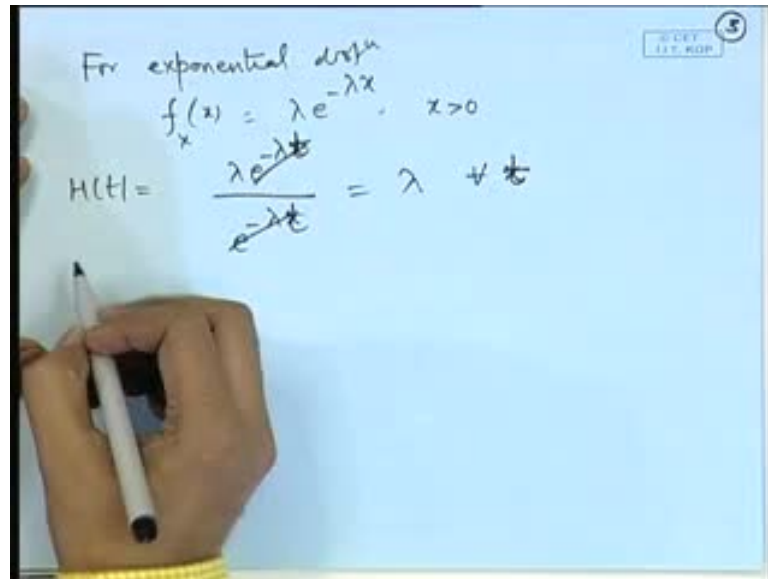 5
© CET
I.I.T. KGP
For exponential distn
f_X(x) = λe^{-λx}. x>0
H(t) = λe^{-λt} / e^{-λt} = λ ∀ t